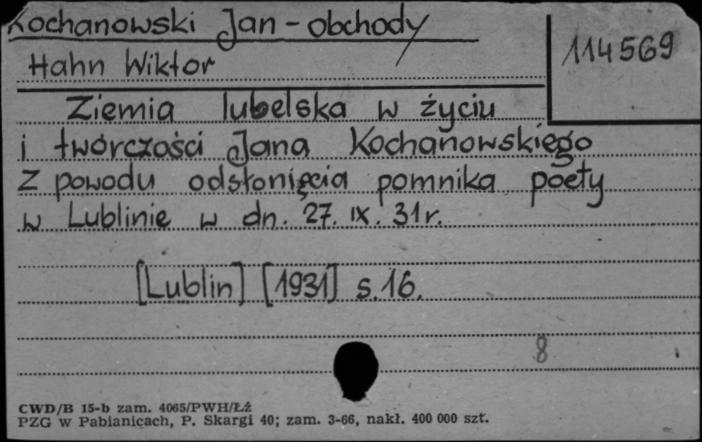 Kochanowski Jan - obchody
114569
Hahn Wiktor
Ziemia lubelska w życiu
i twórczości Jana Kochanowskiego
z powodu odsłonięcia pomnika poety
w Lublinie w dn. 27. IX. 31 r.
[Lublin] [1931] s. 16.
8
CWD/B 15-b zam. 4065/PWH/Łź
PZG w Pabianicach, P. Skargi 40; zam. 3-66, nakł. 400 000 szt.